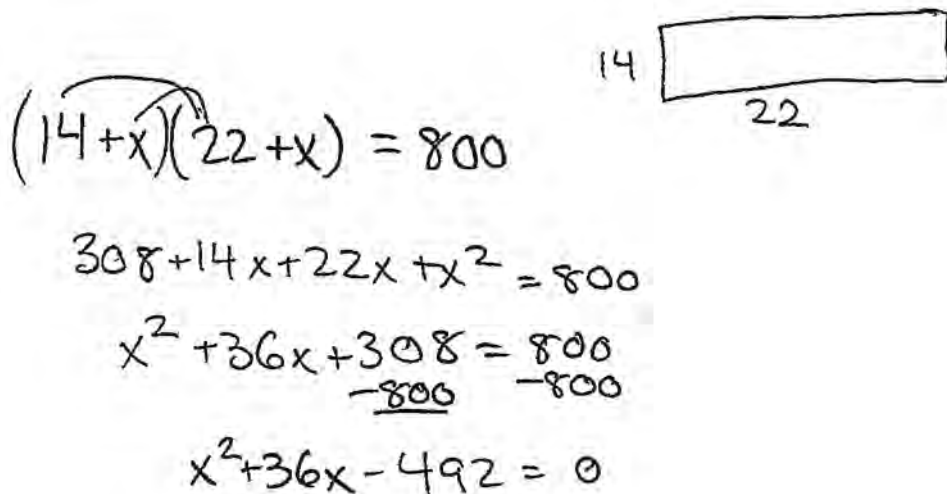 14
22
(14+x)(22+x) = 800
308+14x+22x+x² = 800
x²+36x+308 = 800
-800 -800
x²+36x-492 = 0